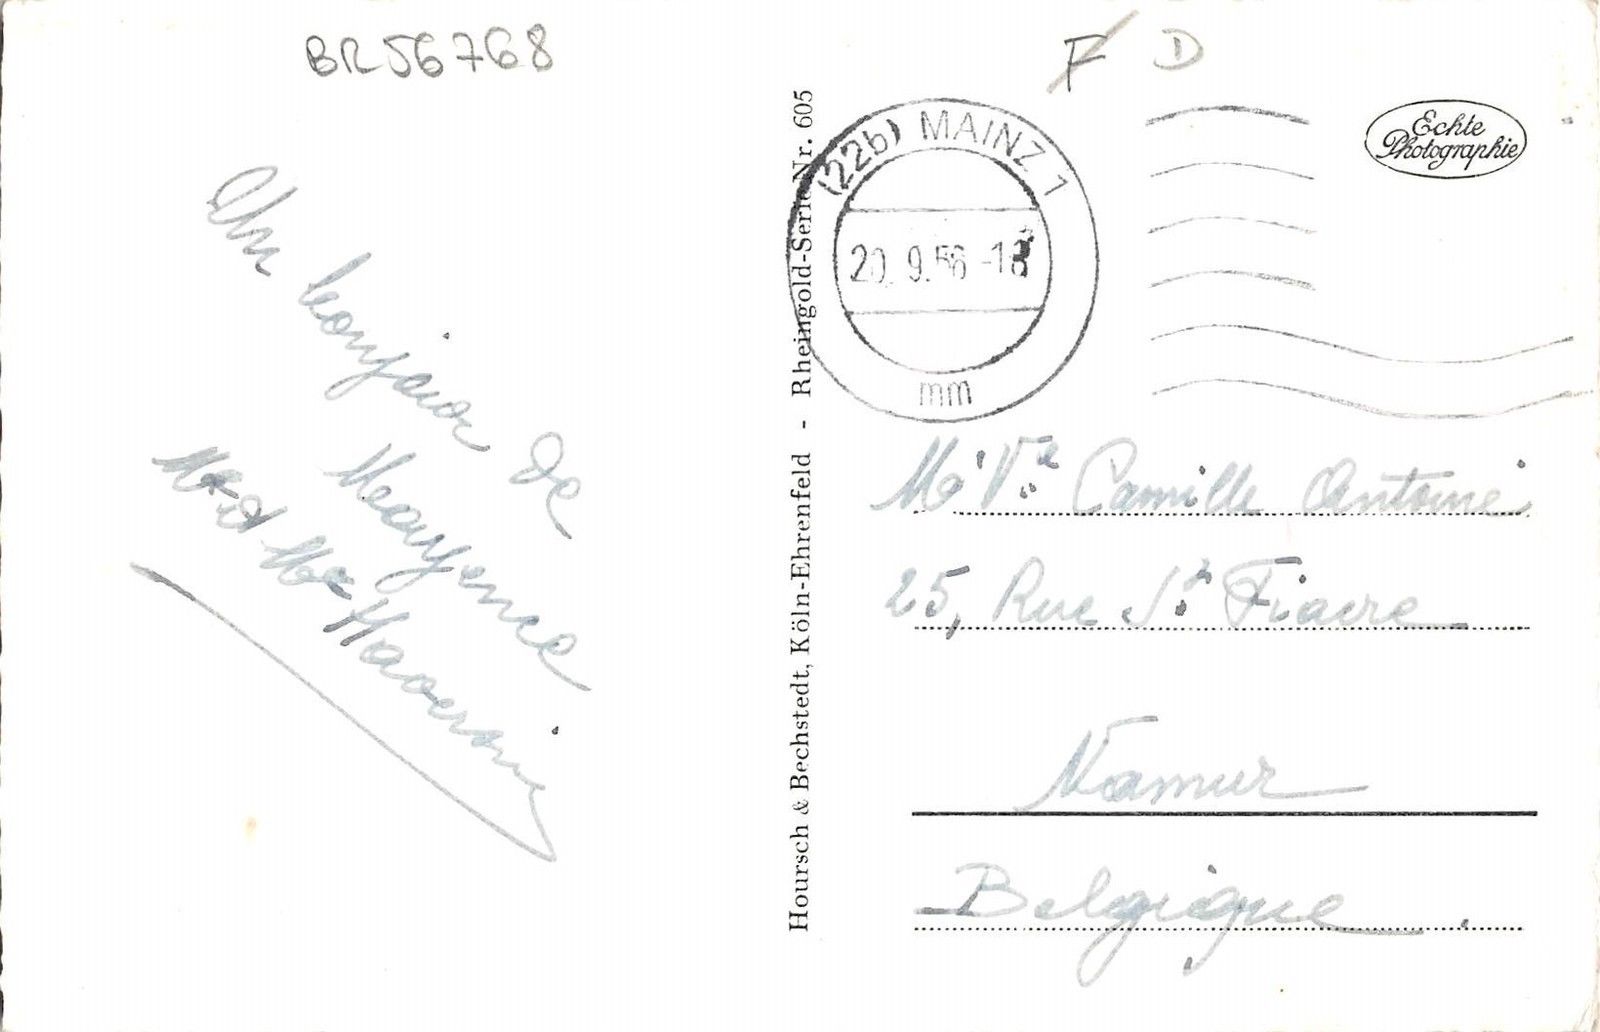 BR56768
F D
Un bonjour de
Mayence
Mr & Mme
Hoursch & Bechstedt, Köln-Ehrenfeld - Rheingold-Serie Nr. 605
(22b) MAINZ 1
20.9.56-18
mm
Echte
Photographie
Mr Ve Camille Antoine
25, Rue St Fiacre
Namur
Belgique